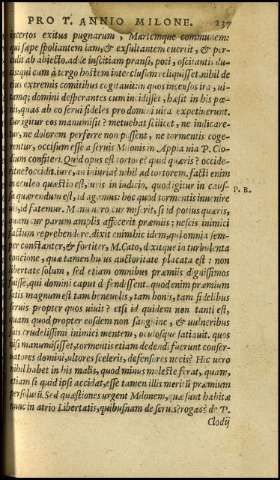 PRO T. ANNIO MILONE. 237
incertos exitus pugnarum, Martemque communem:
qui sæpe spoliantem iam, & exsultantem euertit, & per-
culit ab abiecto. adde inscitiam pransi, poti, oscitantis du-
cis, qui cum à tergo hostem interclusum reliquisset, nihil de
eius extremis comitibus cogitauit: in quos incensos ira, ui-
tamq; domini desperantes cum incidisset, hæsit in his poe-
nis, quas ab eo serui fideles pro domini uita expetiuerunt.
Cur igitur eos manumisit? metuebat scilicet, ne indicare-
ne dolorem perferre non possent, ne tormentis coge-
rentur, occisum esse à seruis Milonis in Appia uia P. Clo-
dium confiteri. Quid opus est tortore? quid quæris? occide-
ritne? occidit. iure, an iniuria? nihil ad tortorem. facti enim
in eculeo quæstio est, iuris in iudicio. quod igitur in caus-
sa quærendum est, id agamus: hoc quod tormentis inuenire
uis, id fatemur. Manu uero cur miserit, si id potius quæris,
quàm cur parum amplis affecerit præmiis; nescis inimici
factum reprehendere. dixit enim hic idem, qui omnia sem-
per constanter, & fortiter, M. Cato, dixitque in turbulenta
concione, quæ tamen huius auctoritate placata est: non
libertate solum, sed etiam omnibus præmiis dignissimos
fuisse, qui domini caput defendissent. quod enim præmium
satis magnum est tam beneuolis, tam bonis, tam fidelibus
seruis, propter quos uiuit? etsi id quidem non tanti est,
quàm quod propter eosdem non sanguine, & uulneribus
suis crudelissimi inimici mentem, oculosque satiauit. quos
nisi manumisisset, tormentis etiam dedendi fuerunt conser-
uatores domini, ultores sceleris, defensores necis? Hic uero
nihil habet in his malis, quod minus moleste ferat, quàm,
etiam si quid ipsi accidat, esse tamen illis meritum præmium
persolutum. Sed quæstiones urgent Milonem, quæ sunt habitæ
nunc in atrio Libertatis. quibusnam de seruis? rogas? de P.
Clodij
P. B.